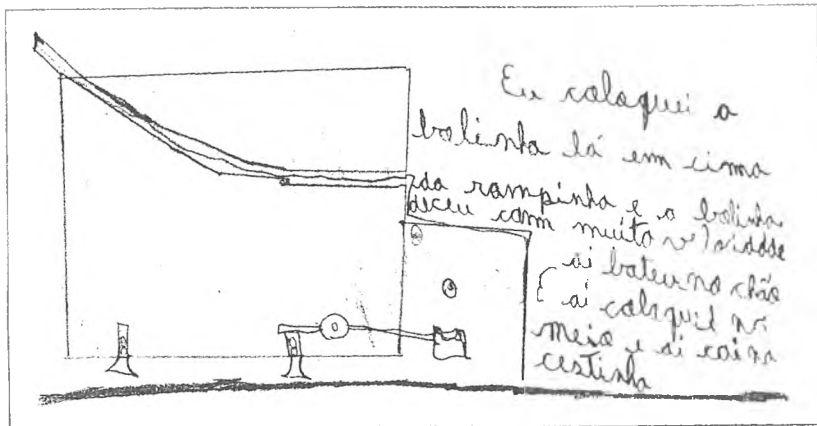 Eu coloquei a
bolinha lá em cima
da rampinha e a bolinha
deceu com muito velosidade
ai bateu no chão
E ai coloquei no
meio e ai cai na
cestinha